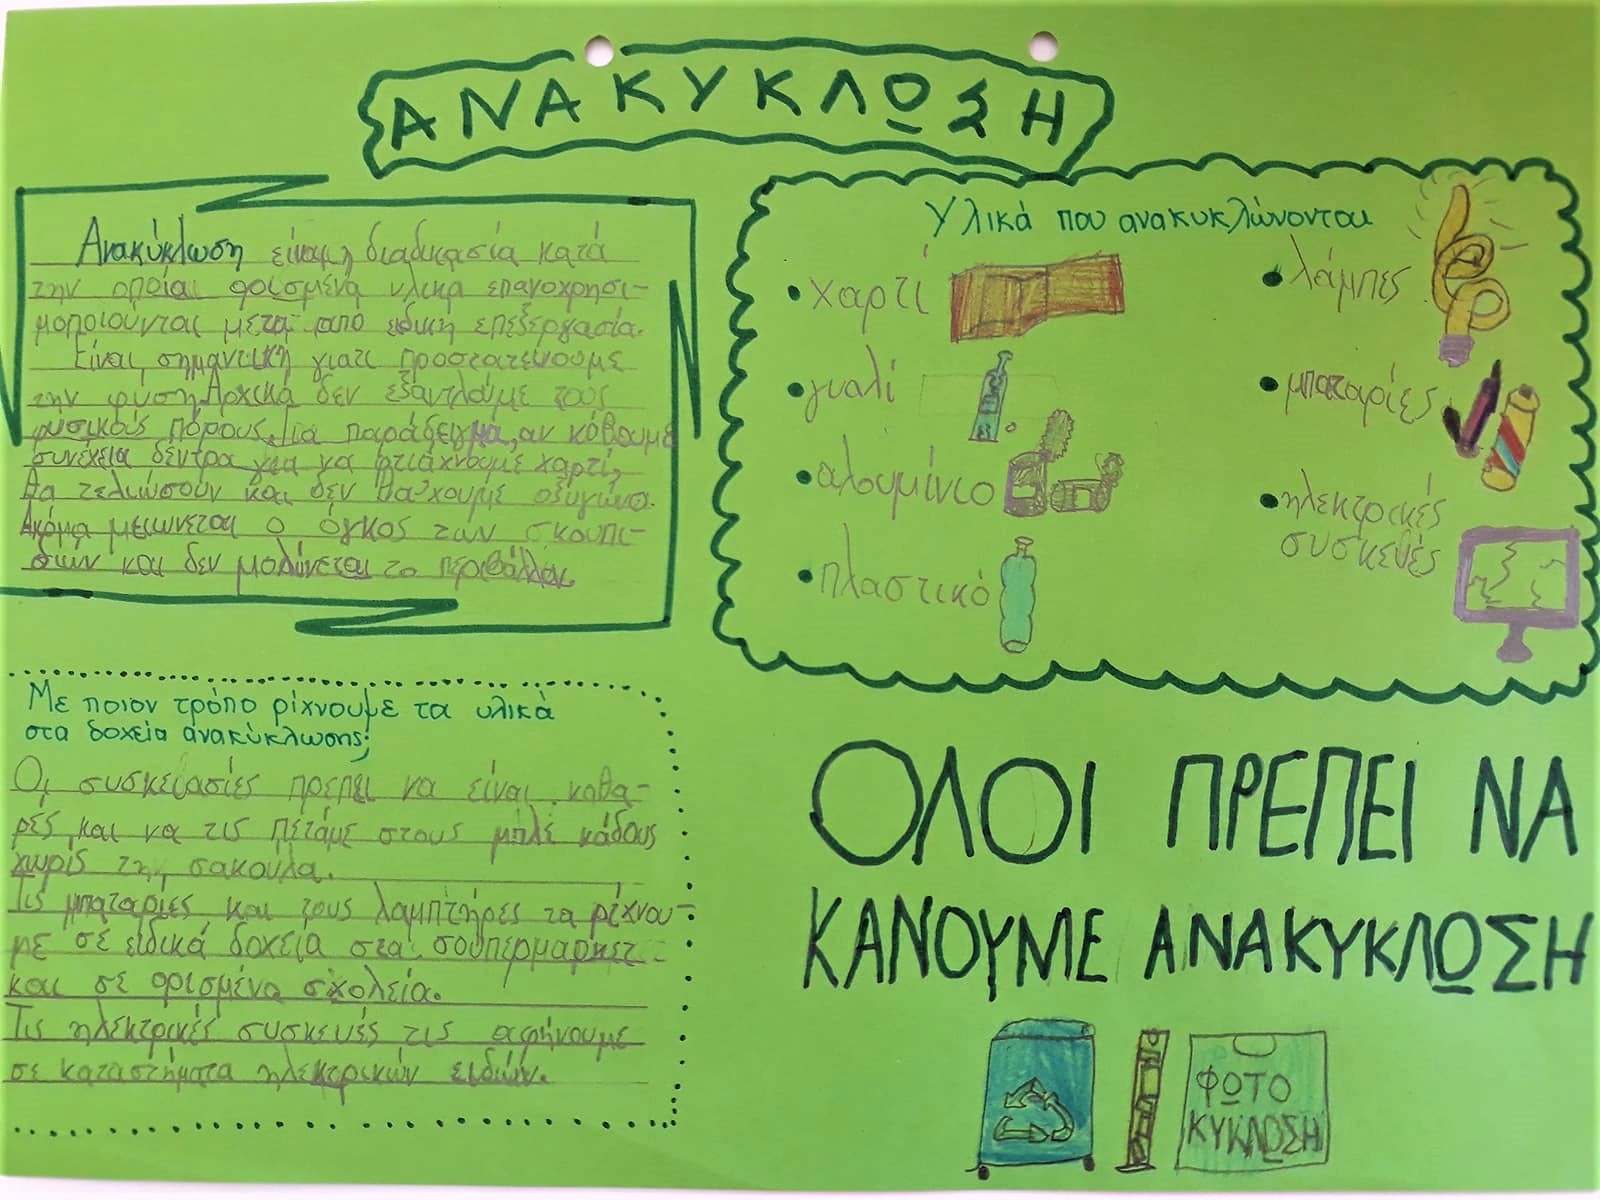 ΑΝΑΚΥΚΛΩΣΗ
Ανακύκλωση είναι η διαδικασία κατά
την οποία ορισμένα υλικα επαναχρησι-
μοποιούνται μετα από ειδικη επεξεργασία.
Είναι σημαντικη γιατι προστατεύουμε
την φύση. Αρχικά δεν εξαντλούμε τους
φυσικούς πόρους. Για παράδειγμα, αν κόβουμε
συνέχεια δεντρα για να φτιάχνουμε χαρτί,
θα τελιώσούν και δεν θα'χουμε οξυγόνο.
Ακόμα μειωνεται ο όγκος των σκουπι-
διών και δεν μολύνεται το περιβάλλον.
Υλικά που ανακυκλώνονται
• χαρτί
• γυαλί
• αλουμίνιο
• πλαστικό
• λάμπες
• μπαταρίες
• ηλεκτρικές
συσκευές
Με ποιον τρόπο ρίχνουμε τα υλικά
στα δοχεία ανακύκλωσης;
Οι συσκευασίες πρεπει να είναι καθα-
ρές και να τις πετάμε στους μπλέ κάδους
χωρίς τη σακούλα.
Τις μπαταρίες και τους λαμπτήρες τα ρίχνου-
με σέ ειδικά δοχεία στα σουπερμαρκετ
και σε ορισμένα σχολεία.
Τις ηλεκτρικές συσκευές τις αφήνουμε
σε καταστήματα ηλεκτρικών ειδών.
ΟΛΟΙ ΠΡΕΠΕΙ ΝΑ
ΚΑΝΟΥΜΕ ΑΝΑΚΥΚΛΩΣΗ
ΦΩΤΟ
ΚΥΚΛΩΣΗ